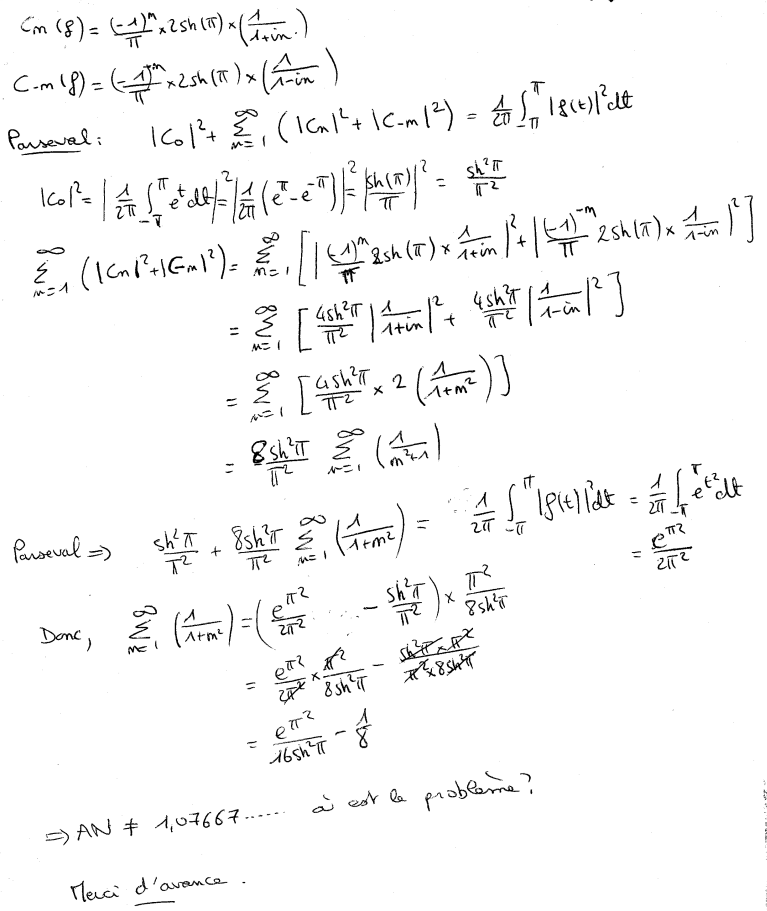 Cn(f) = (-1)^n/π × 2sh(π) × (1/(1+in))
C-n(f) = (-1)^-n/π × 2sh(π) × (1/(1-in))
Parseval : |C0|² + Σ_{n=1}^∞ (|Cn|² + |C-n|²) = 1/2π ∫_{-π}^{π} |f(t)|² dt
|C0|² = |1/2π ∫_{-π}^{π} e^t dt|² = |1/2π (e^π - e^-π)|² = |sh(π)/π|² = sh²π/π²
Σ_{n=1}^∞ (|Cn|² + |C-n|²) = Σ_{n=1}^∞ [|(-1)^n/π 2sh(π) × 1/(1+in)|² + |(-1)^-n/π 2sh(π) × 1/(1-in)|²]
= Σ_{n=1}^∞ [4sh²π/π² |1/(1+in)|² + 4sh²π/π² |1/(1-in)|²]
= Σ_{n=1}^∞ [4sh²π/π² × 2 (1/(1+n²))]
= 8sh²π/π² Σ_{n=1}^∞ (1/(n²+1))
Parseval => sh²π/π² + 8sh²π/π² Σ_{n=1}^∞ (1/(1+n²)) = 1/2π ∫_{-π}^{π} |f(t)|² dt = 1/2π ∫_{-π}^{π} e^t² dt
= e^π²/2π²
Donc, Σ_{n=1}^∞ (1/(1+n²)) = (e^π²/2π² - sh²π/π²) × π²/8sh²π
= e^π²/2π² × π²/8sh²π - sh²π × π²/π² × 8sh²π
= e^π²/16sh²π - 1/8
=> AN ≠ 1,07667...... où est le problème ?
Merci d'avance .